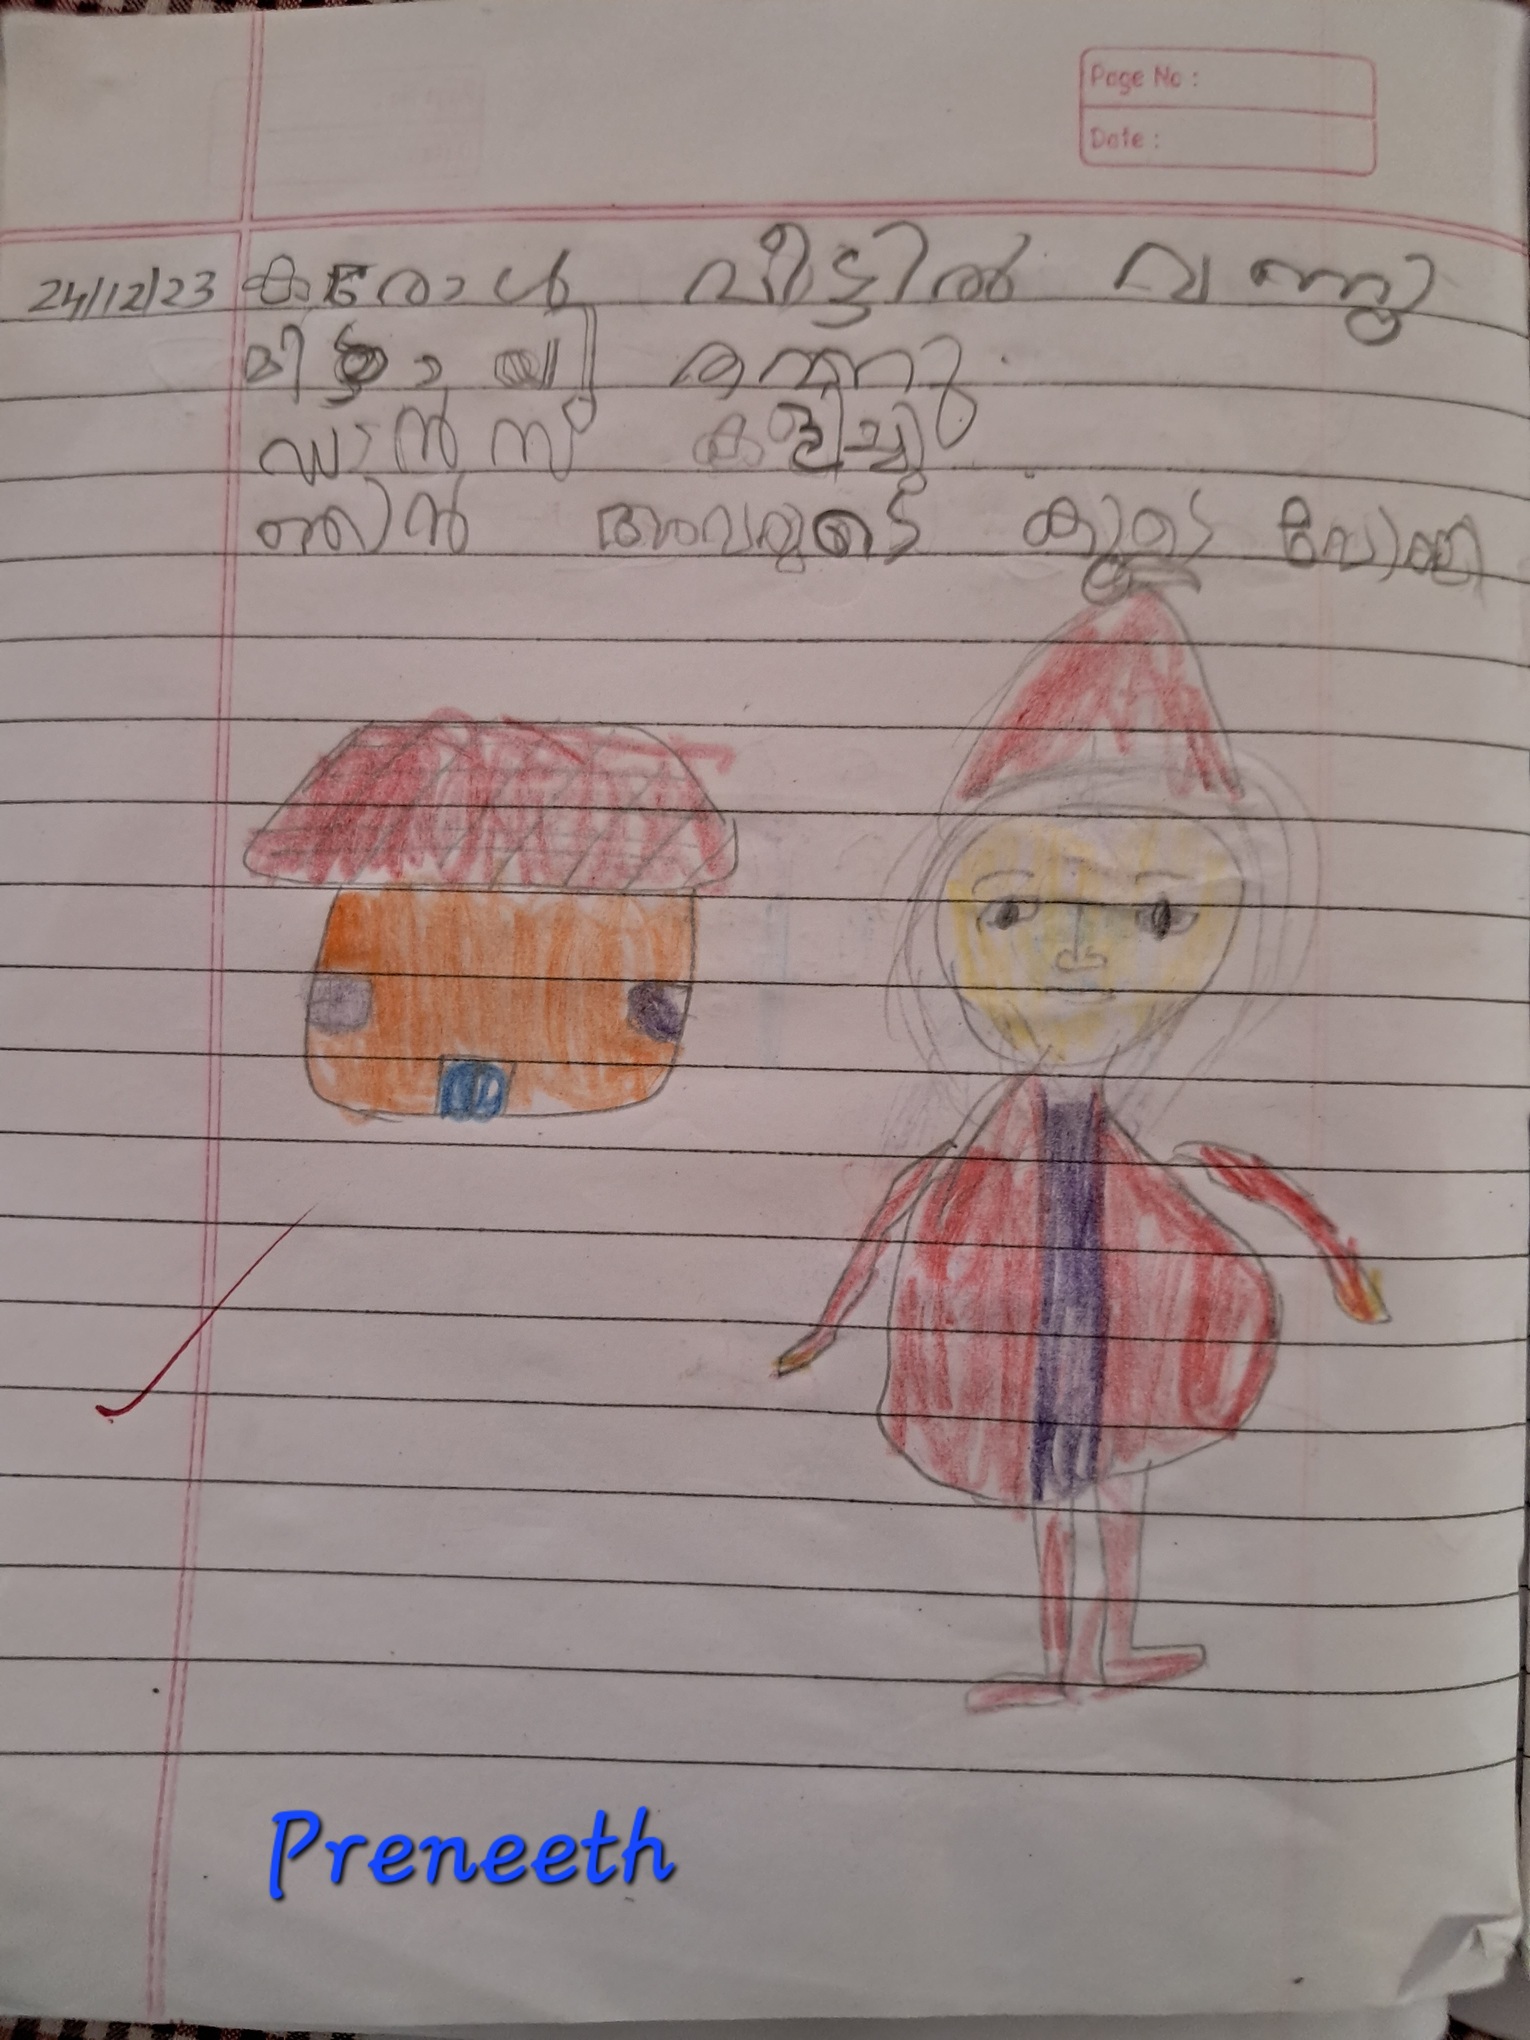 Page No :
Date :
24/12/23 കരോൾ വീട്ടിൽ വന്നു
മിഠായി തന്നു.
ഡാൻസ് കളിച്ചു
ഞാൻ അവരുടെ കൂടെ പോയി
Preneeth